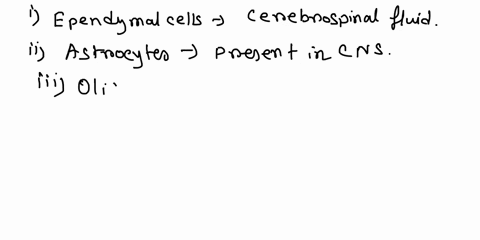 i) Ependymal cells → Cerebrospinal fluid.
ii) Astrocytes → Present in CNS.
iii) Oli